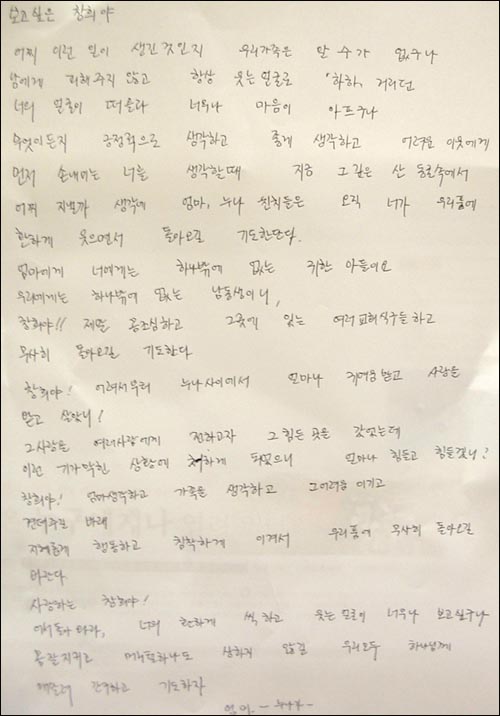 보고싶은 창희야
어찌 이런 일이 생긴것인지 우리가족은 알 수가 없구나
남에게 피해주지 않고 항상 웃는 얼굴로 '하하' 거리던
너의 얼굴이 떠올라 너무나 마음이 아프구나
무엇이든지 긍정적으로 생각하고 좋게 생각하고 어려운 이웃에게
먼저 손내미는 너를 생각할때 지금 그 깊은 산 동굴속에서
어찌 지낼까 생각에 엄마, 누나 친척들은 오직 너가 우리품에
환하게 웃으면서 돌아오길 기도한단다.
엄마에게 너에게는 하나밖에 없는 귀한 아들이요
우리에게는 하나밖에 없는 남동생이니,
창희야!! 제발 몸조심하고 그곳에 있는 여러교회식구들하고
무사히 돌아오길 기도한다
창희야! 어려서부터 누나사이에서 얼마나 귀여움받고 사랑을
받고 살았니?
그사랑을 여러사람에게 전하고자 그 힘든 곳을 갔었는데
이런 기가막힌 상황에 처하게 되었으니 얼마나 힘들고 힘들겠니?
창희야! 엄마생각하고 가족을 생각하고 그어려움 이기고
견뎌주길 바래
지혜롭게 행동하고 침착하게 이겨서 우리품에 무사히 돌아오길
바란다
사랑하는 창희야!
어서돌아와라, 너의 환하게 씩 하고 웃는 모습이 너무나 보고싶구나
몸잘지키고 머리털하나도 상하지 않길 우리모두 하나님께
간구하고 기도하자